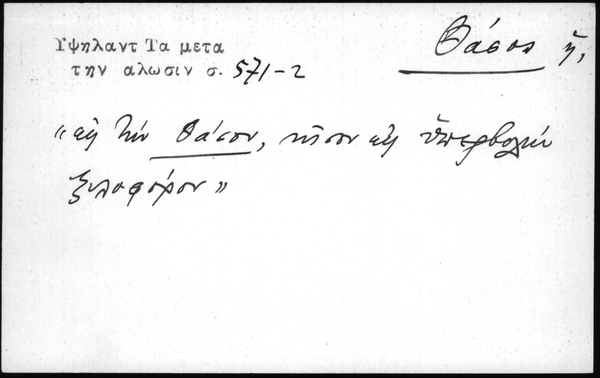 Υψηλαντ Τα μετα
την αλωσιν σ. 571-2
Θάσος ἡ,
"εἰς τὴν Θάσον, νῆσον εἰς ὑπερβολὴν
ξυλοφόρον"